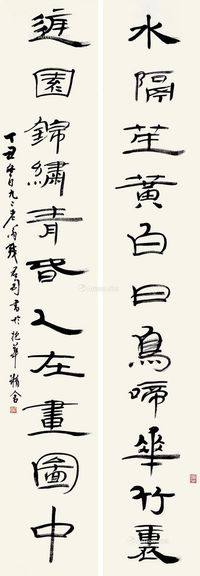 水隔笙簧白日鳥啼華竹裏
庭園錦繡青春人在畫圖中
丁丑冬日九二老錢君匋書於抱華精舍